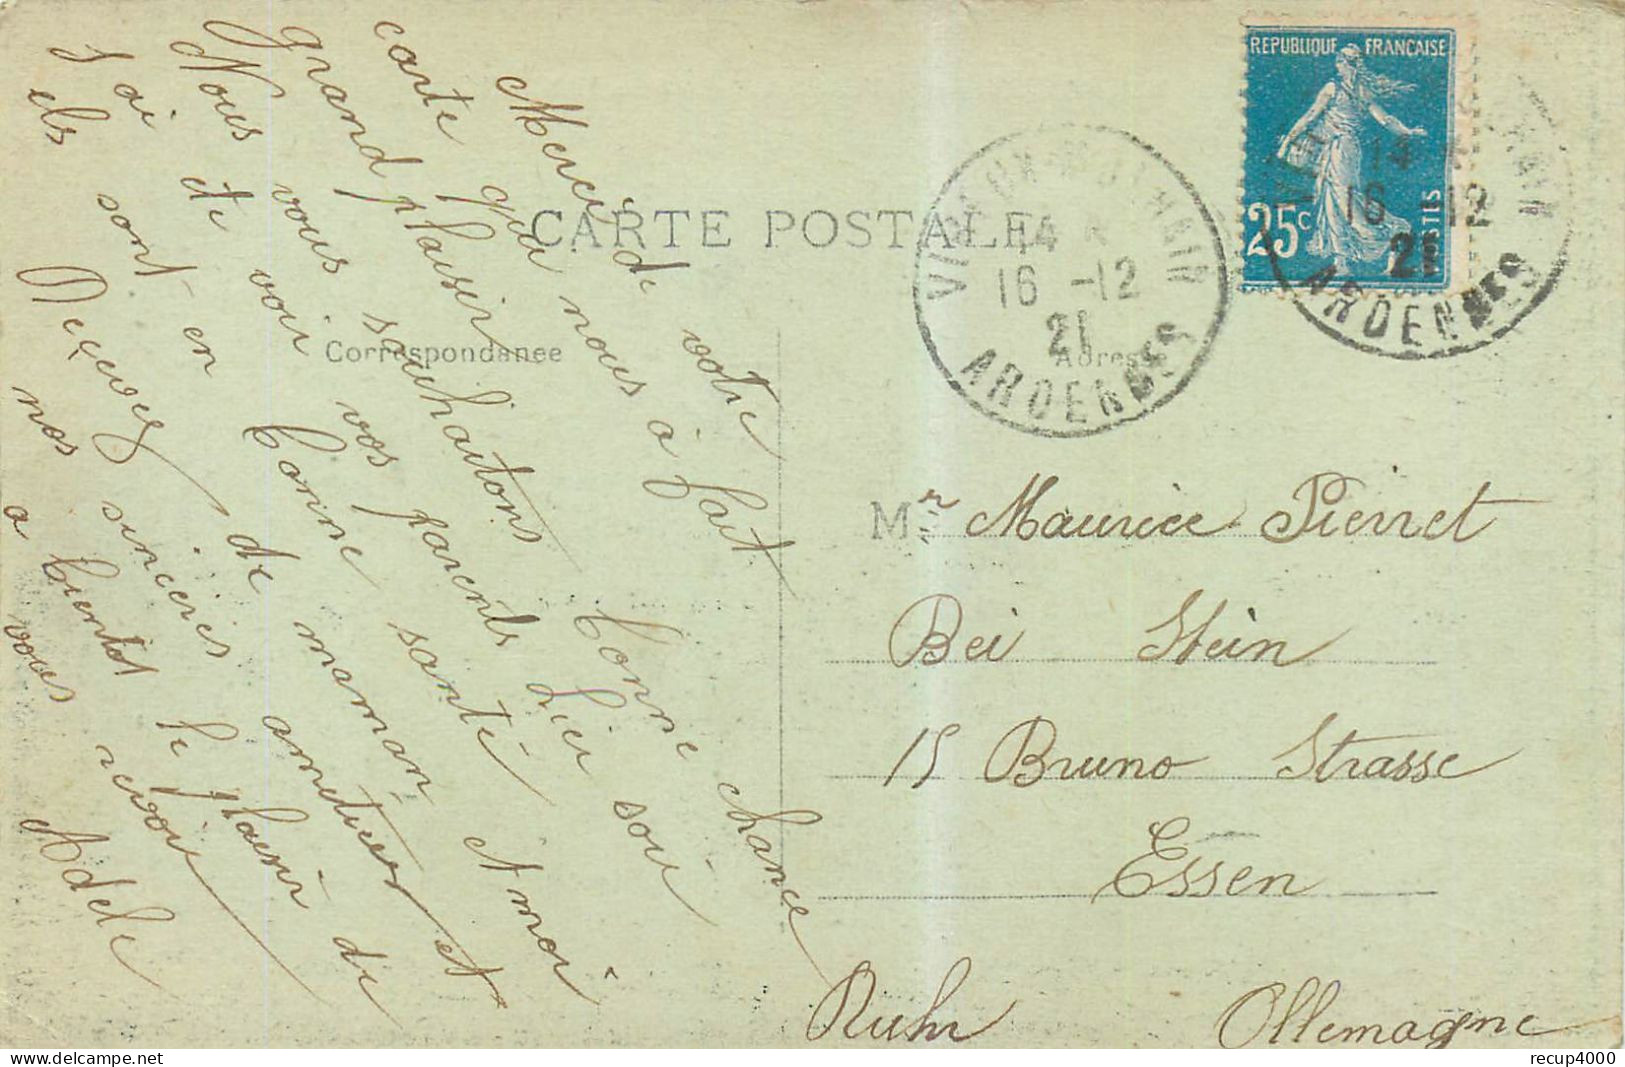 REPUBLIQUE FRANÇAISE
25c
POSTES
VIEUX-LES-MANRE
14
16 -12
21
ARDENNES
14
16 12
21
ARDENNES
CARTE POSTALE
Correspondance
Adresse
Merci de votre
carte qui nous a fait
grand plaisir
Nous vous souhaitons bonne chance
J'ai été voir vos parents hier soir
ils sont en bonne santé
Recevez de maman et moi
nos sincères amitiés et
à bientôt le plaisir de
vous revoir
Adèle
Mr Maurice Pierret
Bei Stein
15 Bruno Strasse
Essen
Ruhr Allemagne
recup4000